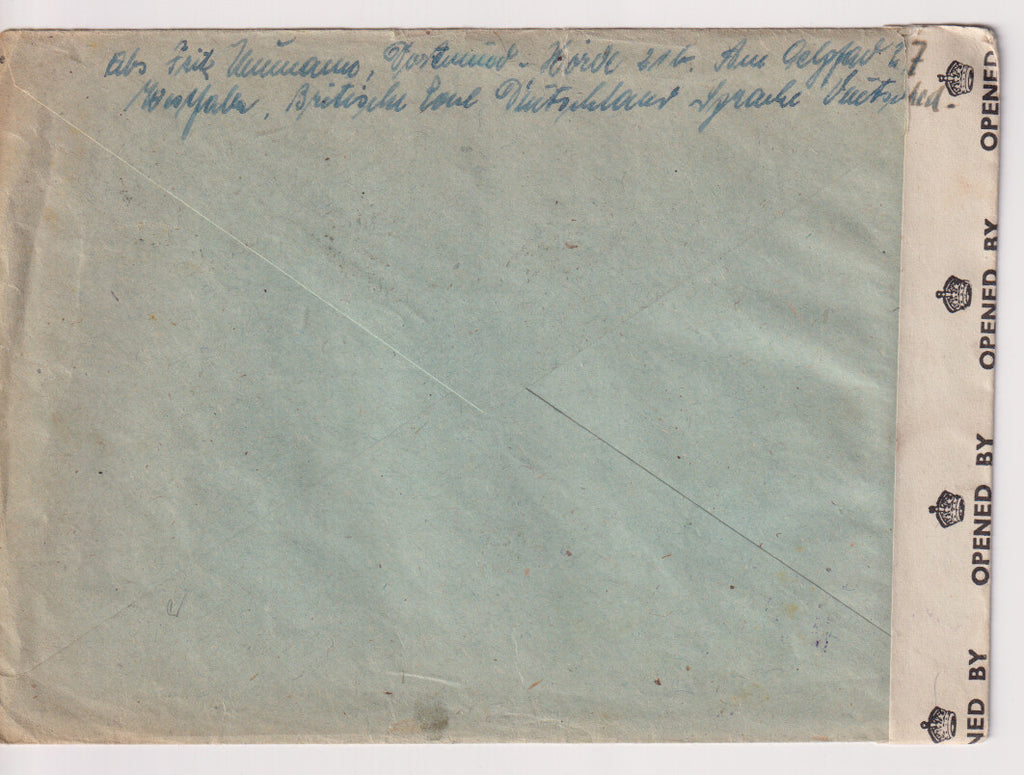 Abs Fritz Neumann, Dortmund - Hörde 21b. Am Oelpfad 27
Westfalen, Britische Zone Deutschland Sprache Deutsched.
OPENED
OPENED BY
OPENED BY
NED BY